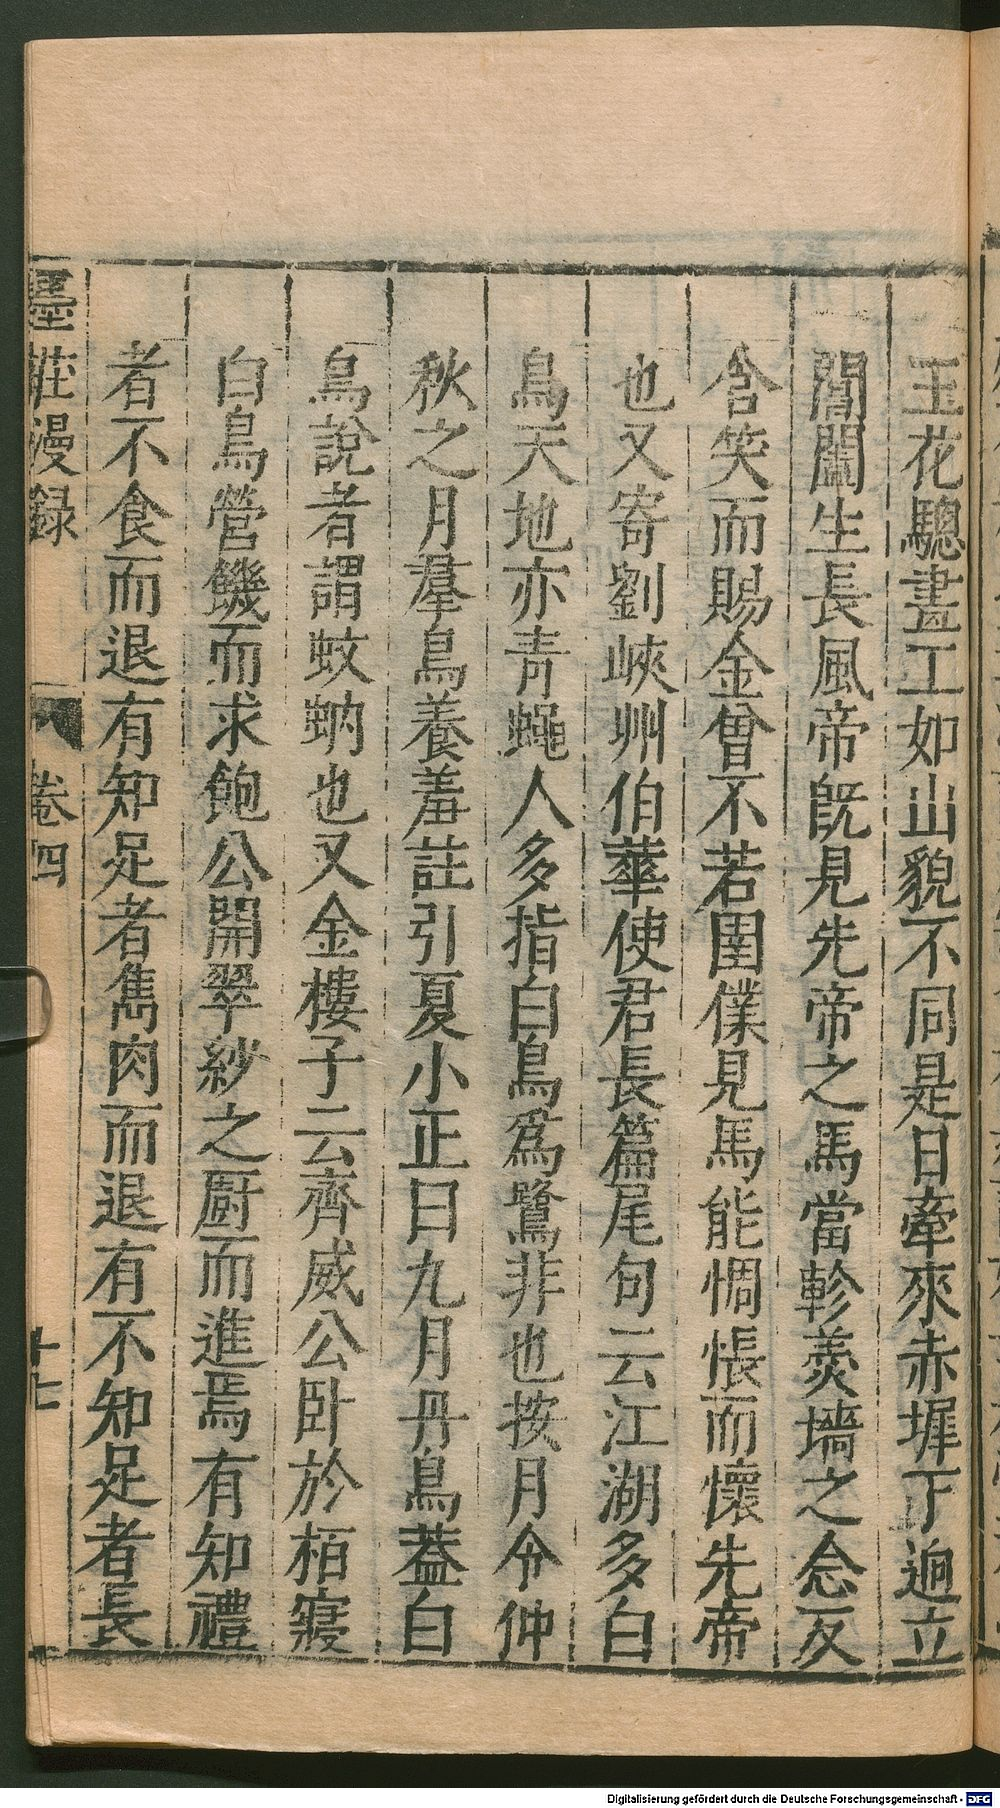 玉花驄畫工如山貌不同是日牽來赤墀下逈立
閶闔生長風帝旣見先帝之馬當軫羮墻之念反
含笑而賜金曾不若圉僕見馬能惆悵而懷先帝
也又寄劉峽州伯華使君長篇尾句云江湖多白
鳥天地亦青蠅人多指白鳥爲鷺非也按月令仲
秋之月羣鳥養羞註引夏小正曰九月丹鳥葢白
鳥說者謂蚊蚋也又金樓子云齊威公卧於栢寢
白鳥營饑而求飽公開翠紗之厨而進焉有知禮
者不食而退有知足者雋肉而退有不知足者長
墨莊漫録 卷四 十七
Digitalisierung gefördert durch die Deutsche Forschungsgemeinschaft - DFG